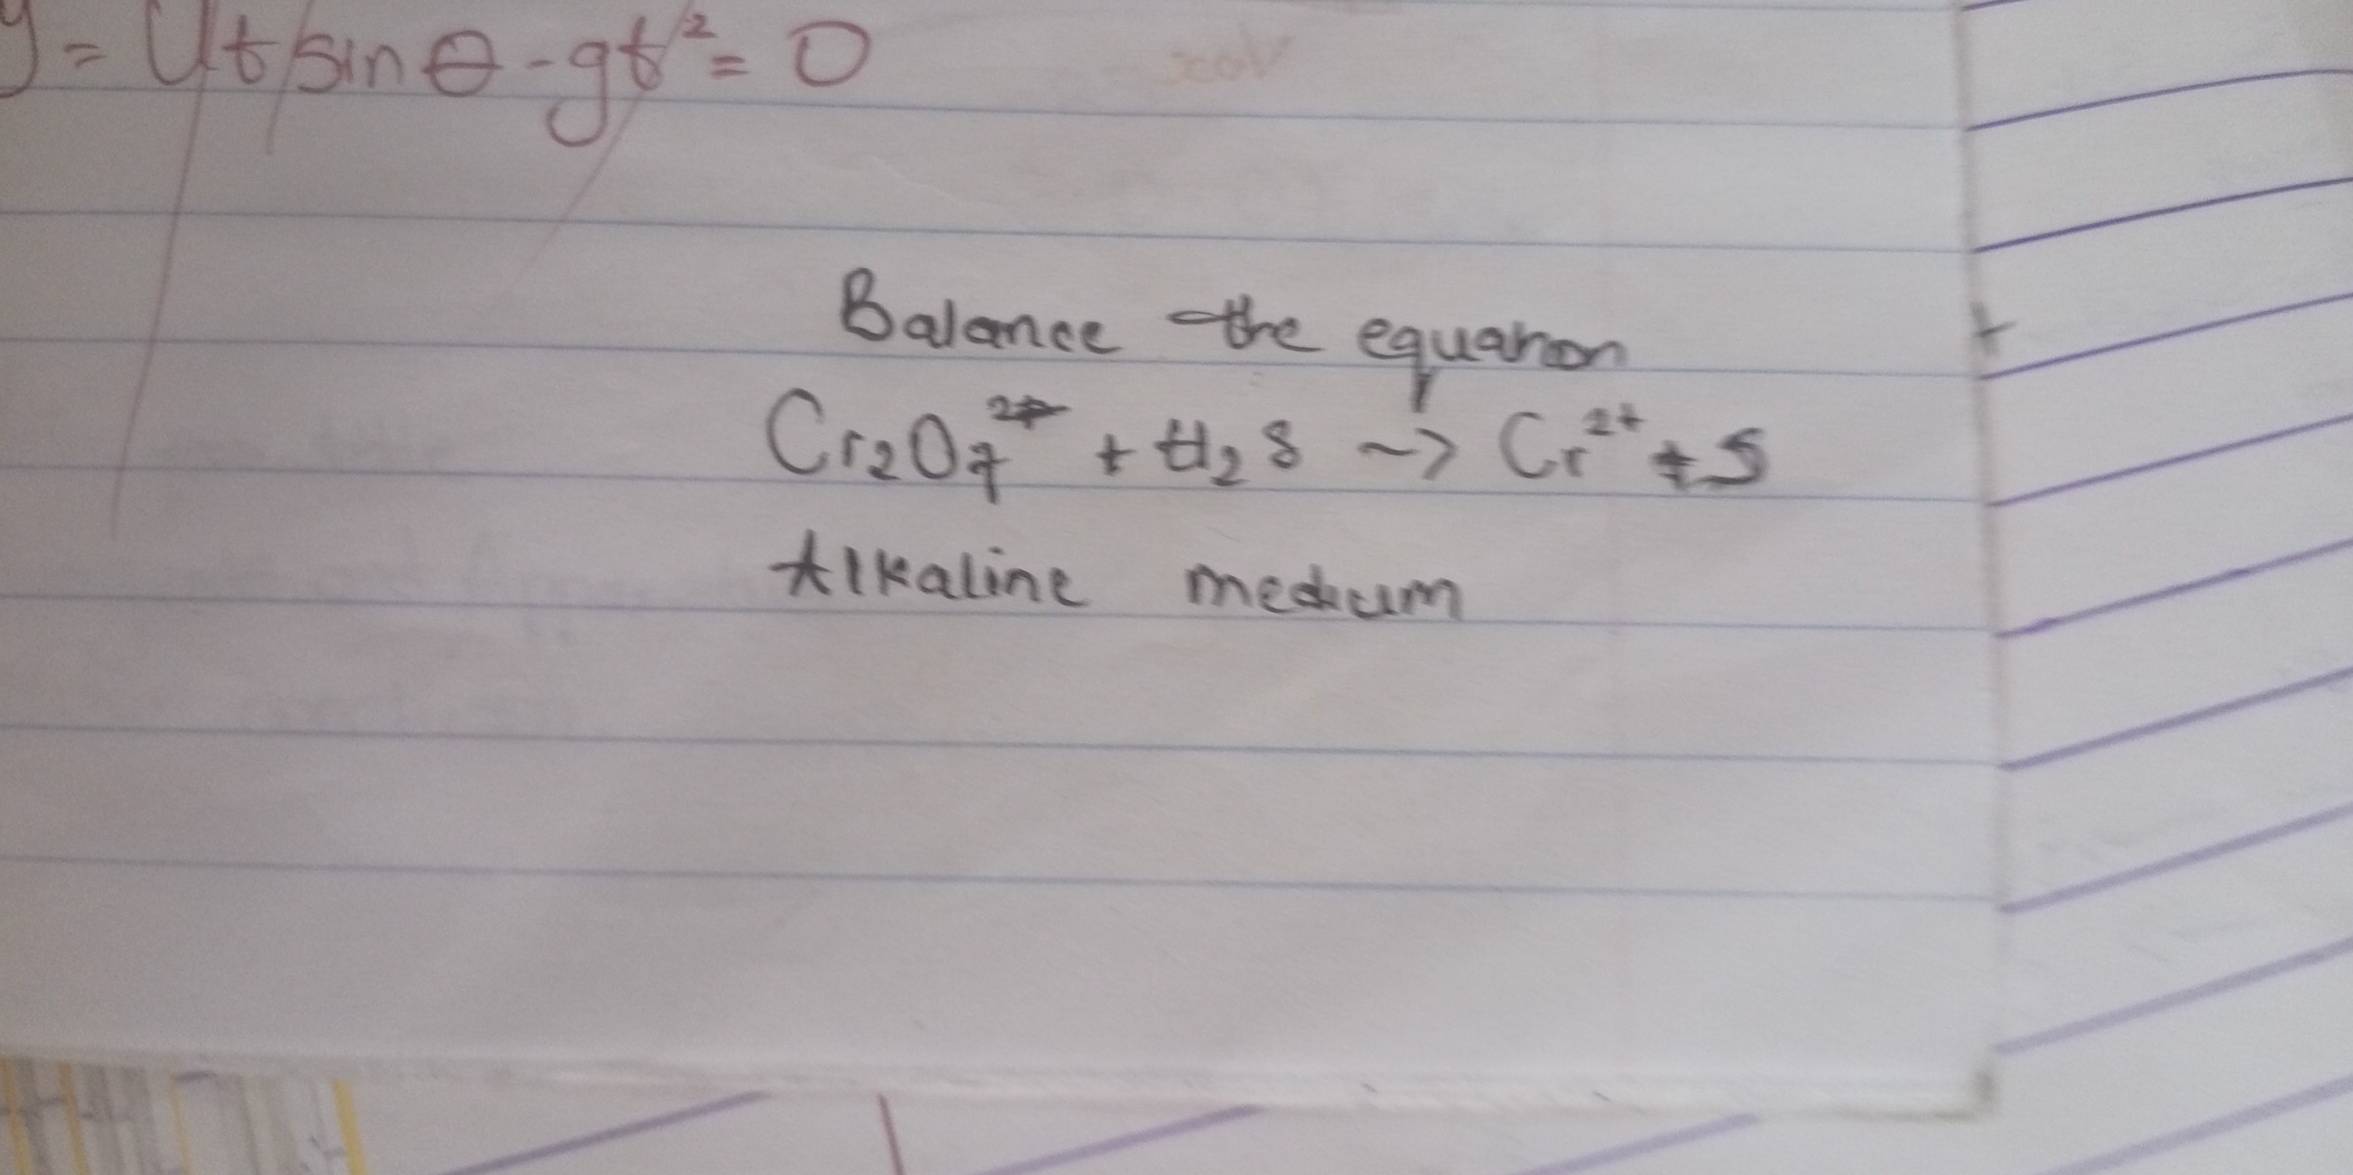 y = Ut sin θ - gt² = 0
Balance the equation
Cr₂O₇²⁻ + H₂S → Cr²⁺ + S
Alkaline medium